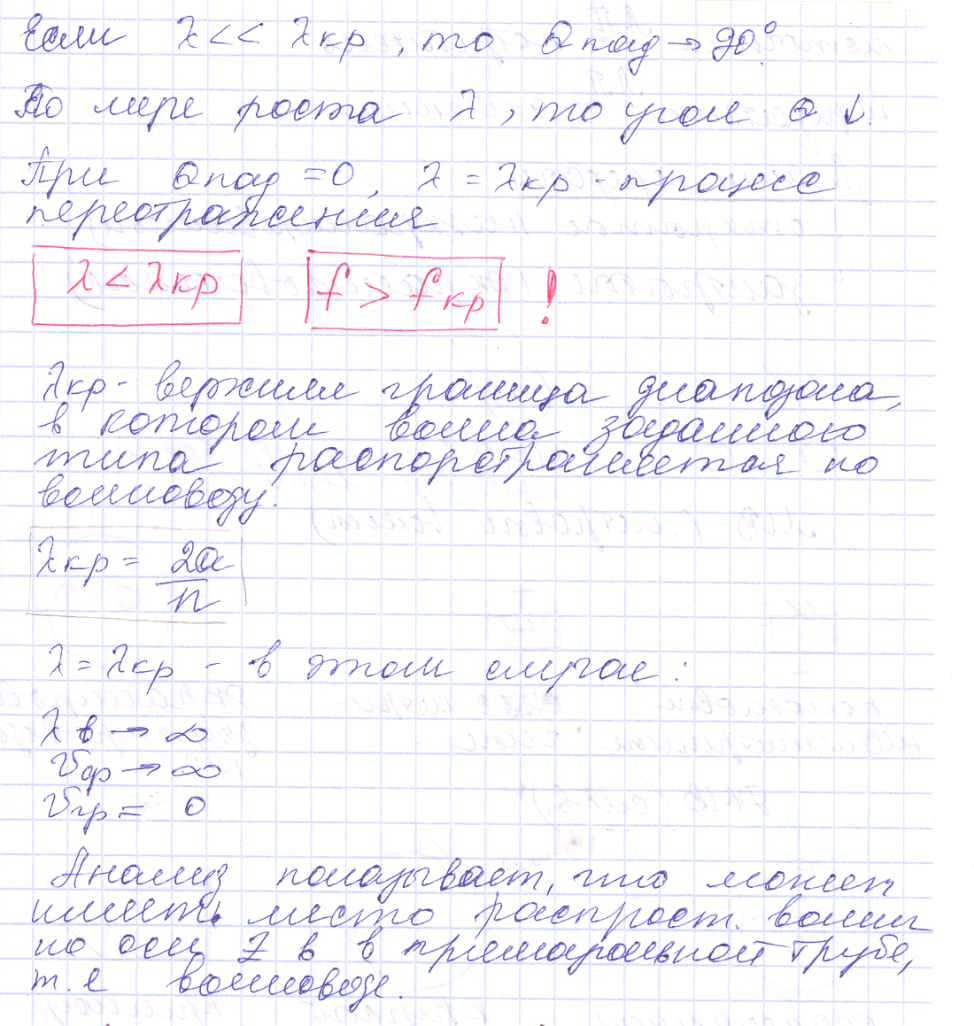 Если λ<< λкр, то Qпад→90°.
По мере роста λ, то угол Q↓.
При Qпад=0, λ=λкр - процесс
переотражения
λ<λкр f>fкр !
λкр - верхняя граница диапазона,
в котором волна заданного
типа распоротраняется по
волноводу.
λкр = 2a/n
λ=λкр - в этом случае:
λв→∞
Vф→∞
Vгр= 0
Анализ показывает, что может
иметь место распрост. волны
по оси Z в в прямоугольной трубе,
т.е волноводе.